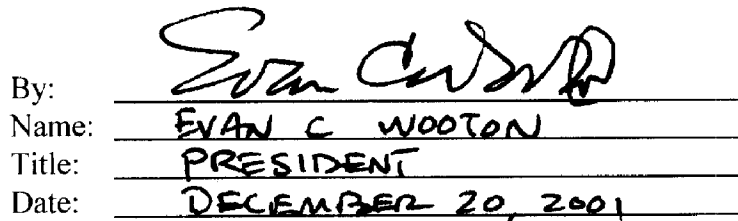 By: Evan C Wooton
Name: EVAN C WOOTON
Title: PRESIDENT
Date: DECEMBER 20, 2001